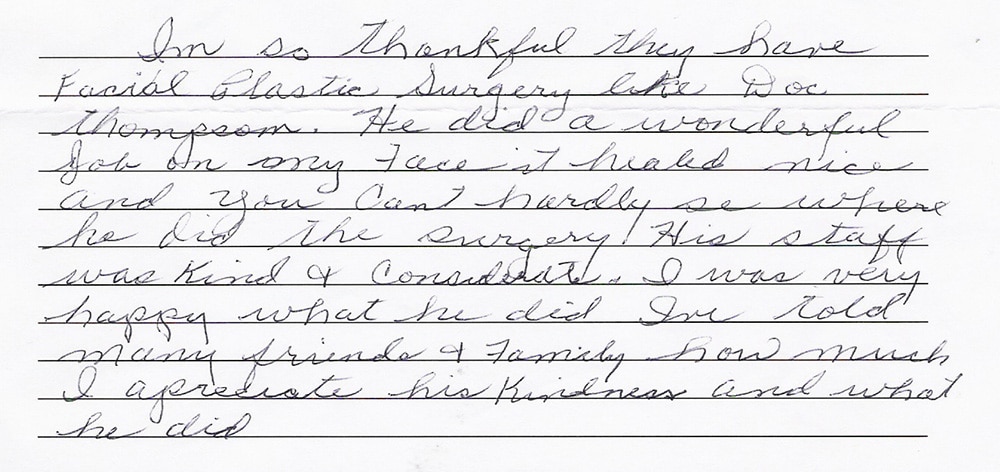 Im so thankful they have
Facial Plastic Surgery like Doc
Thompsom. He did a wonderful
Job on my Face it healed nice
and you Cant hardly se where
he did the surgery! His staff
was Kind & Considerate. I was very
happy what he did Ive told
many friends & Family how much
I apreciate his Kindness and what
he did